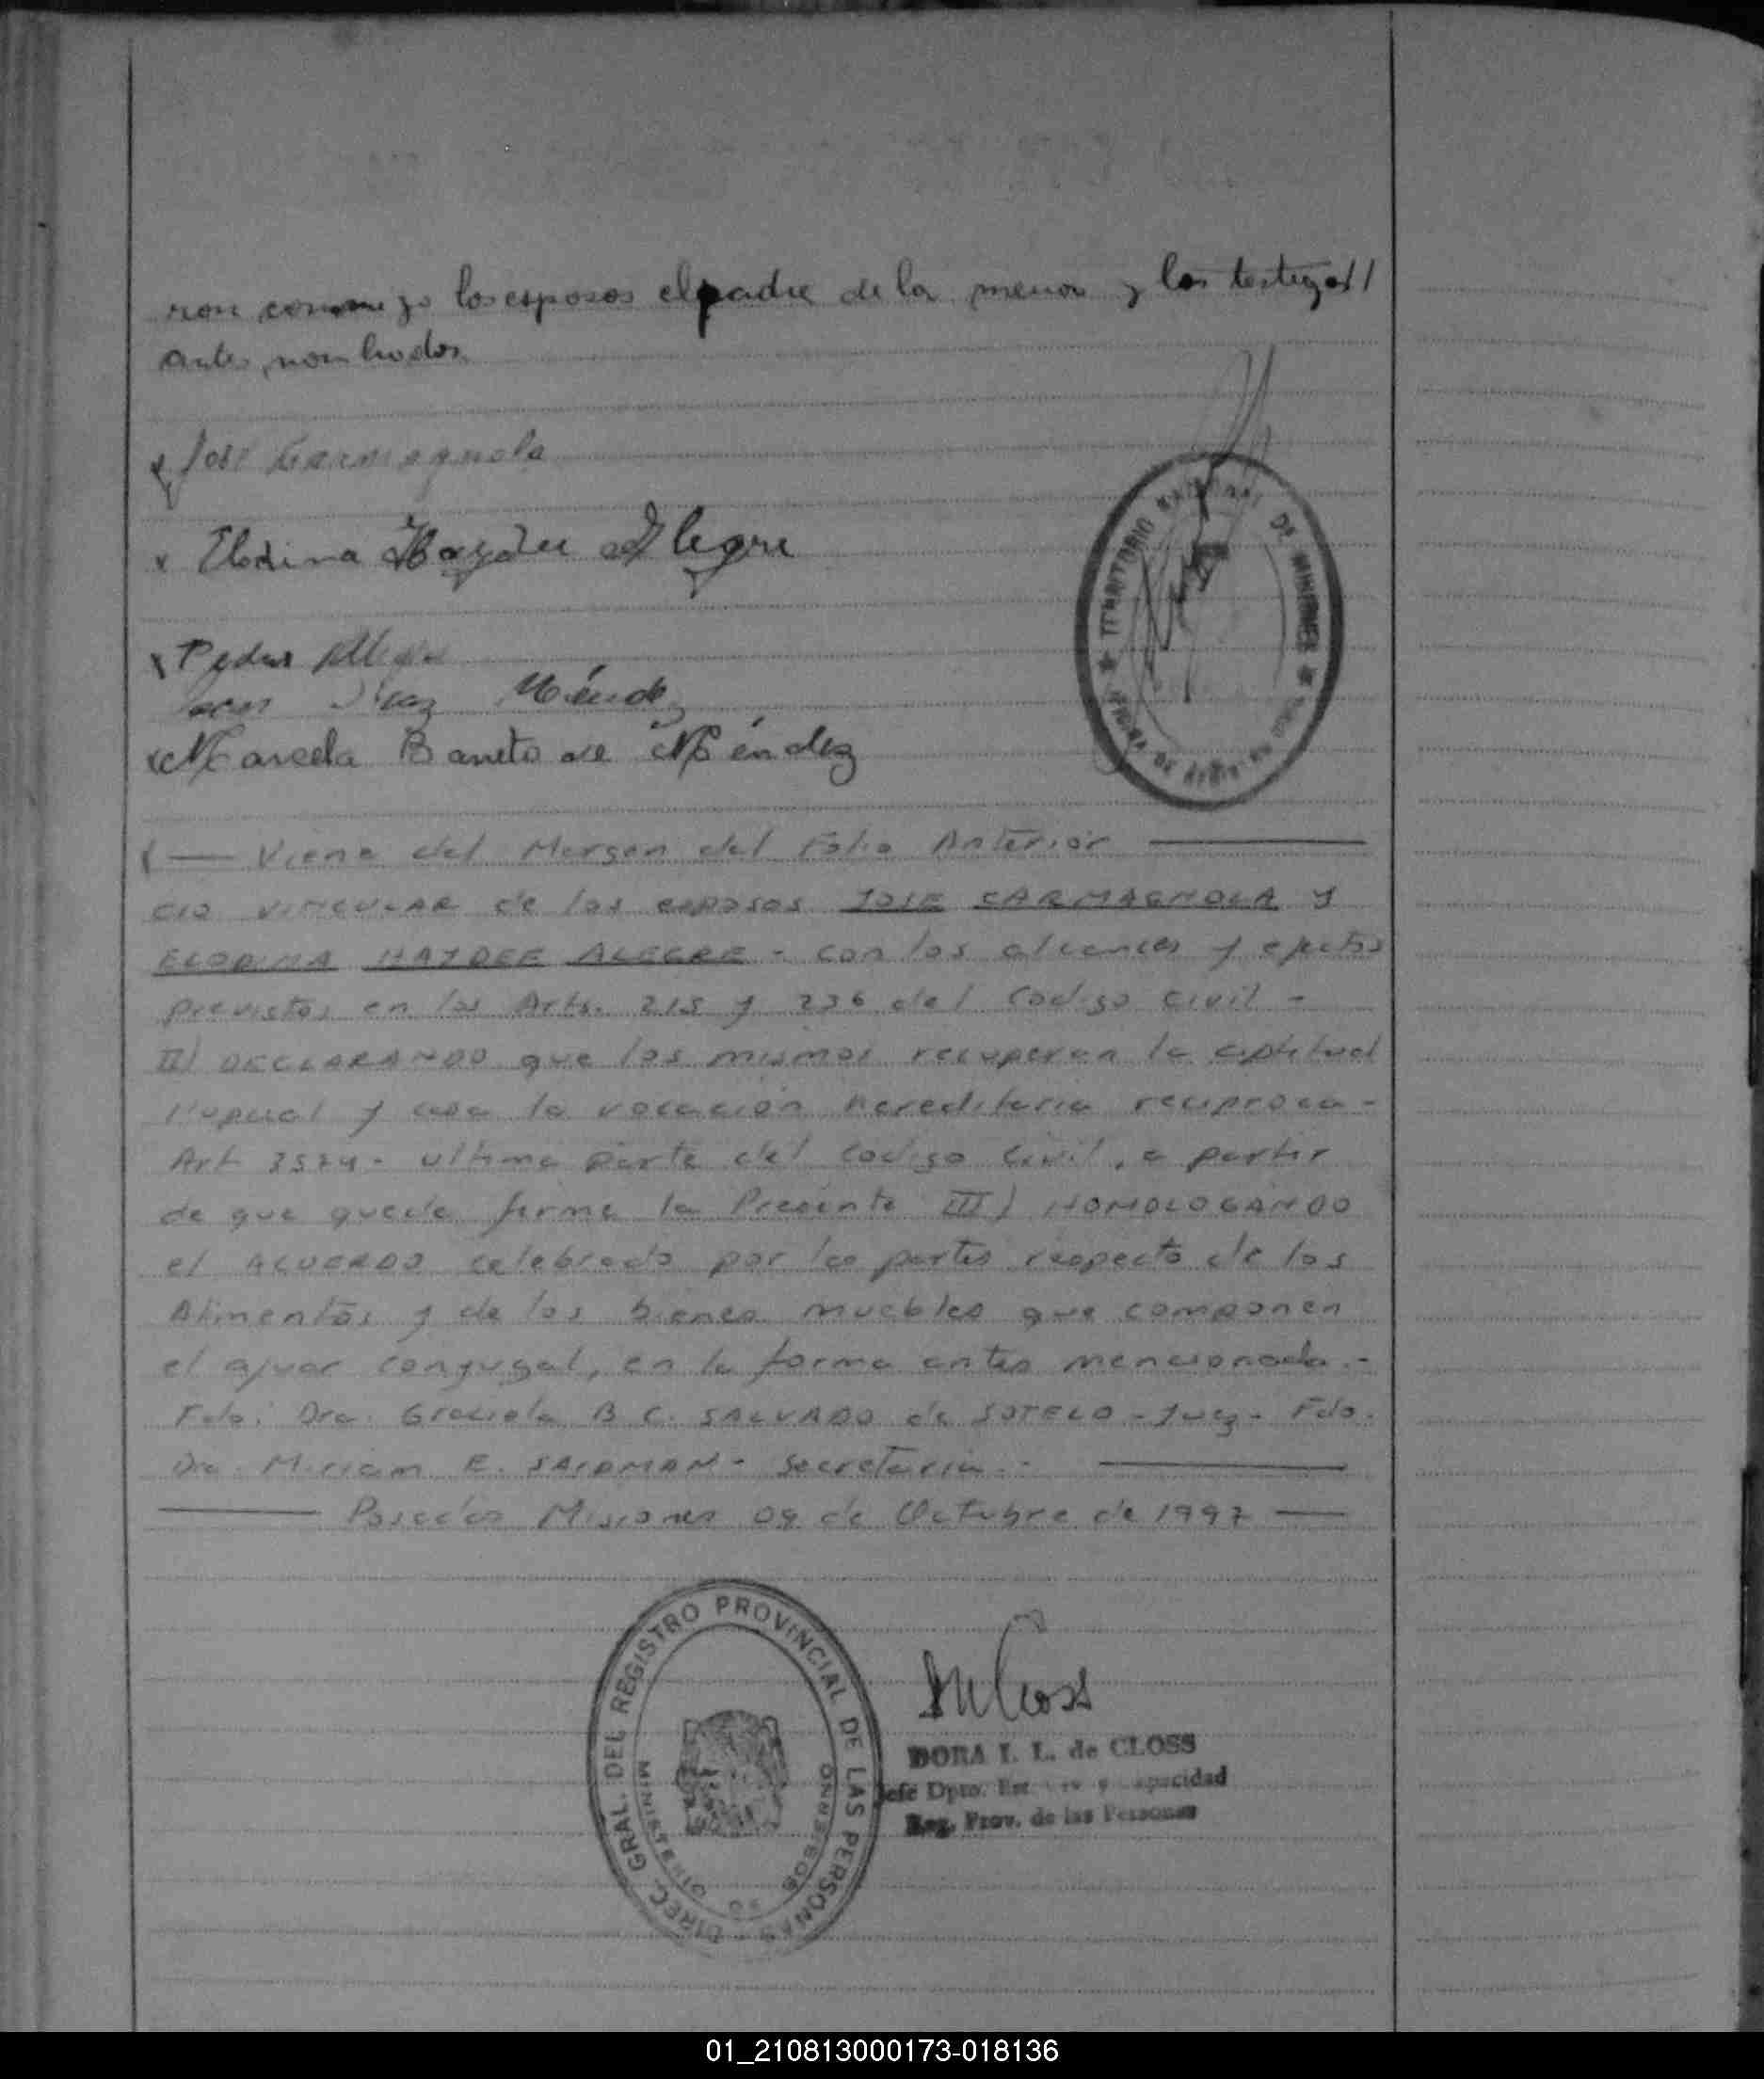 ron conmigo los esposos el padre de la menor y los testigos //
antes nombrados
x José Carmagnola
x Elorina Haydee Alegre
x Pedro Alegre
Díaz Méndez
x Marcela Barreto de Méndez
TERRITORIO NACIONAL DE MISIONES
( — Viene del Margen del Folio Anterior —
cio VINCULAR de los esposos JOSE CARMAGNOLA y
ELORINA HAYDEE ALEGRE - con los alcances y efectos
previstos en los Arts. 215 y 236 del Codigo Civil -
II) DECLARANDO que los mismos recuperan la aptitud
Nupcial y cesa la vocación hereditaria reciproca -
Art 3574 - ultima parte del Codigo Civil, a partir
de que quede firme la Presente III) HOMOLOGANDO
el ACUERDO celebrado por las partes respecto de los
Alimentos y de los bienes muebles que componen
el ajuar conyugal, en la forma antes mencionada.-
Fdo: Dra. Graciela B C. SALVADO de SOTELO - Juez - Fdo.
Dra. Miriam E. SAIDMAN - Secretaria.- —
— Posadas Misiones 09 de Octubre de 1997 —
DIREC. GRAL. DEL REGISTRO PROVINCIAL DE LAS PERSONAS
MINISTERIO DE GOBIERNO
DORA I. L. de CLOSS
Jefe Dpto. y Capacidad
Reg. Prov. de las Personas
01_210813000173-018136